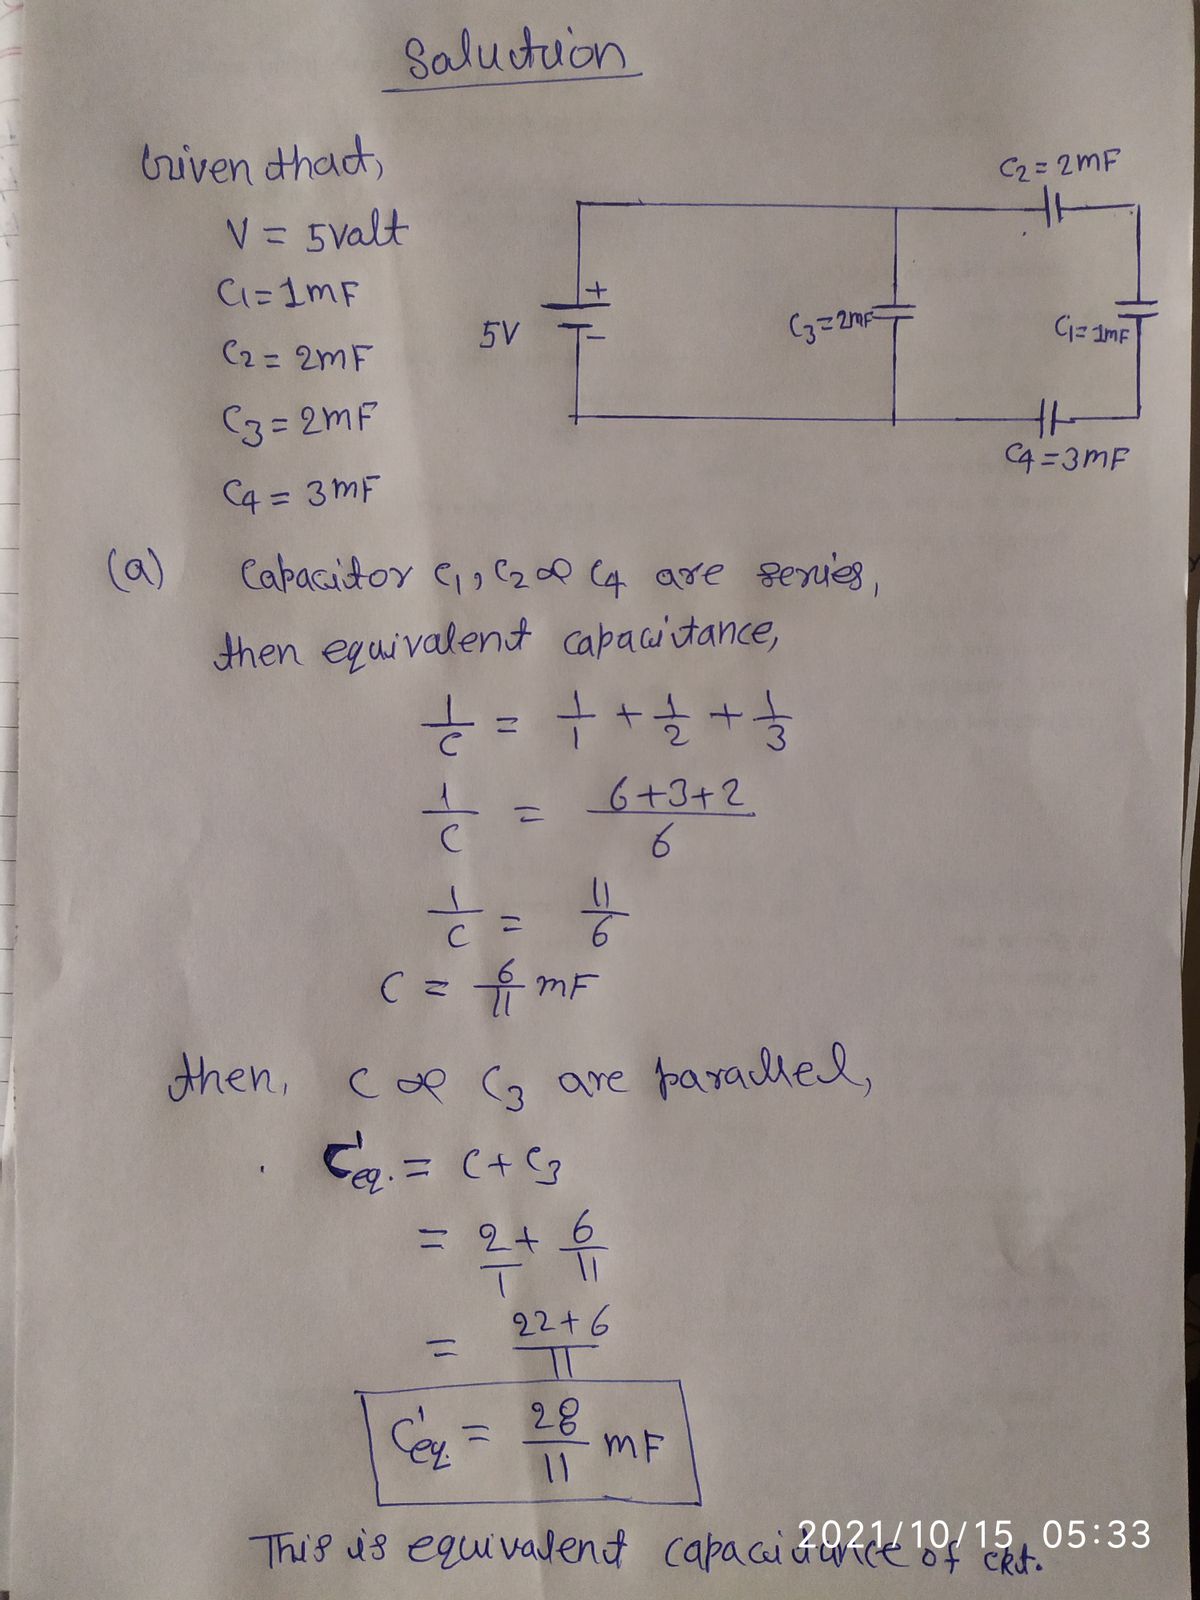 Salution
Given that,
V = 5valt
C1 = 1mF
C2 = 2mF
C3 = 2mF
C4 = 3mF
C2 = 2mF
5V
+
-
C3 = 2mF
C1 = 1mF
C4 = 3mF
(a) Capacitor C1, C2 & C4 are series,
then equivalent capacitance,
1/C = 1/1 + 1/2 + 1/3
1/C = 6+3+2/6
1/C = 11/6
C = 6/11 mF
then, C & C3 are parallel,
C'eq. = C + C3
= 2/1 + 6/11
= 22+6/11
C'eq. = 28/11 mF
This is equivalent capacitance of ckt.
2021/10/15 05:33